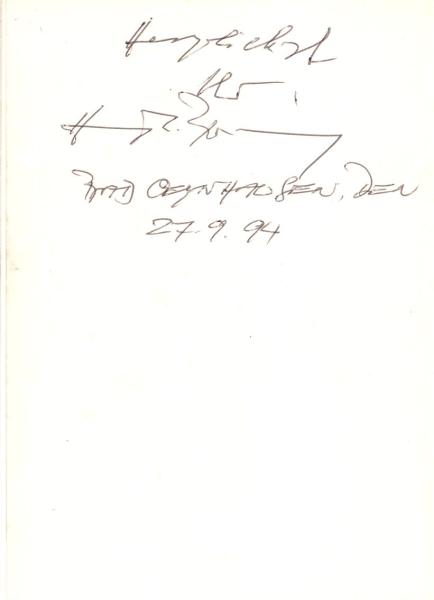 Herzlichst
Ihr
BAD OEYNHAUSEN, DEN
27.9.94